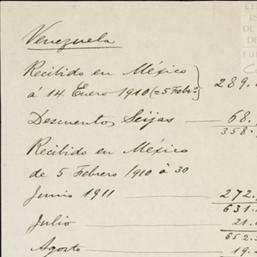 Venezuela
Recibido en México
á 14 Enero 1910 (=5 Febo) 289.
Descuentos Seijas 68.
358.
Recibido en México
de 5 Febrero 1910 á 30
Junio 1911 272.
631.
Julio 21.
652.
Agosto 19.